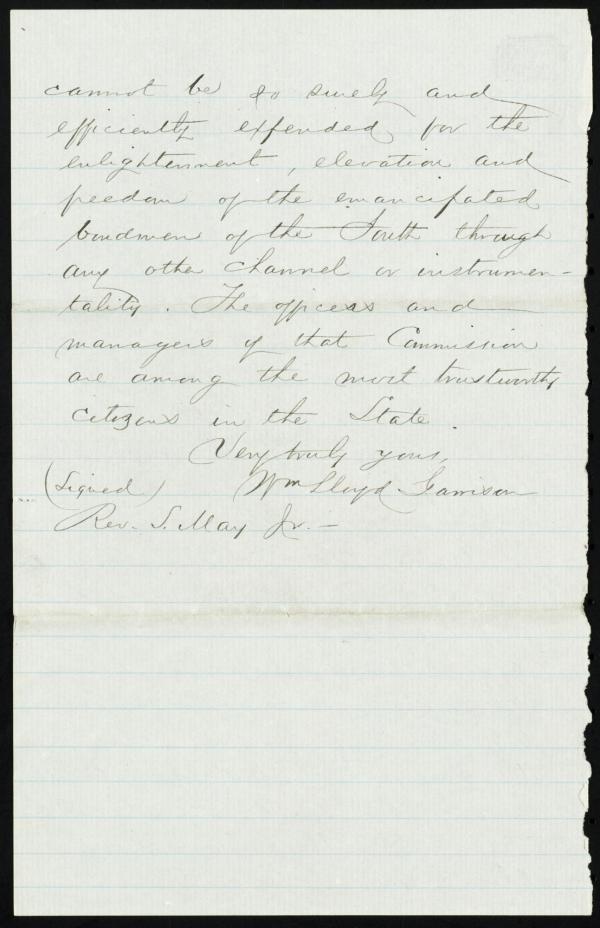 cannot be so surely and
efficiently expended for the
enlightenment, elevation and
freedom of the emancipated
bondmen of the South through
any other channel or instrumen-
tality. The officers and
managers of that Commission
are among the most trustworthy
citizens in the State.
Very truly yours,
(Signed) Wm Lloyd Garrison
Rev. S. May Jr. —